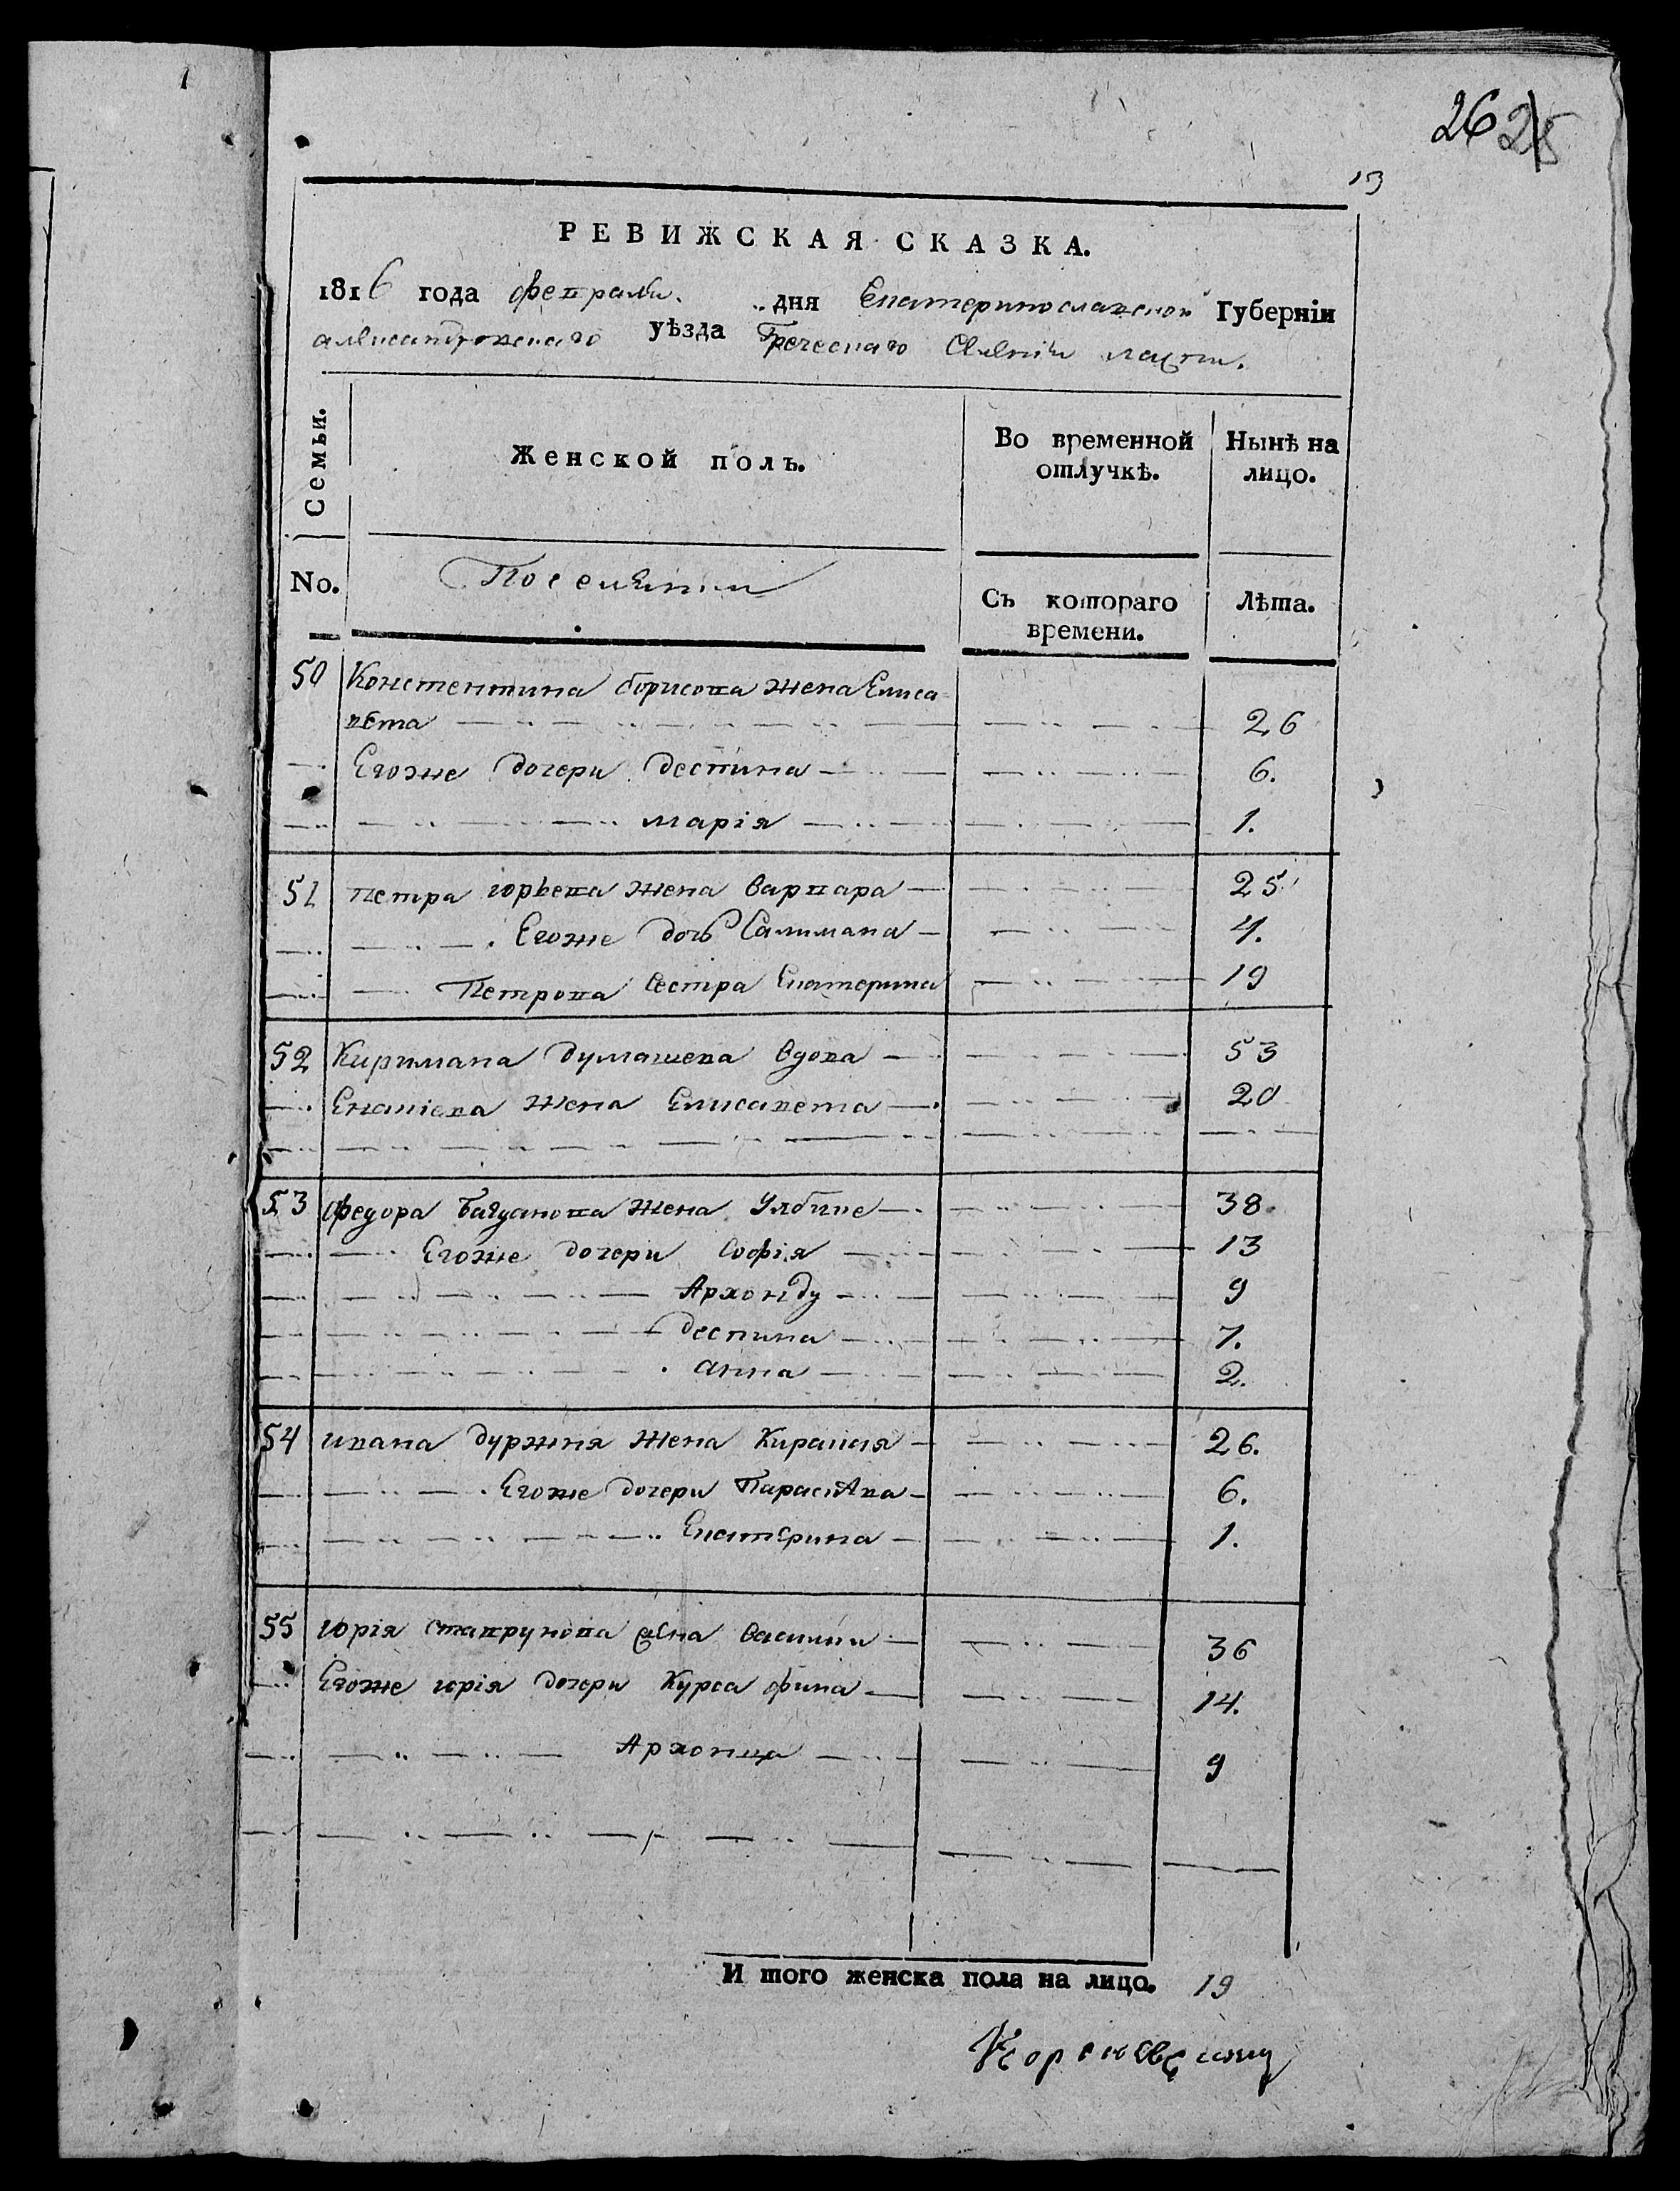 26 25
13
РЕВИЖСКАЯ СКАЗКА.
1816 года февраля дня Екатеринославской Губернiи
александровскаго уѣзда Греческаго Селенiи
Семьи.
Женской полъ.
Во временной отлучкѣ.
Нынѣ на лицо.
No.
Поселяни
Съ котораго времени.
Лѣта.
50 Констентина борисова жена Елиса
вета 26
Егоже дочери деспина 6.
марiя 1.
51 петра юрьева жена варвара 25
Егоже дочь Салтмана 4.
Петрова Сестра Екатерина 19
52 Кириmana думашева вдова 53
жена Елисавета 20
53 федора Багданова жена Улбике 38
Егоже дочери Софiя 13
Архонду 9
деспина 7.
анна 2.
54 ивана дуржия жена Киракия 26.
Егоже дочери Параскева 6.
Екатерина 1.
55 юрiя ставрунова жена васили 36
Егоже юрiя дочери Курсафина 14.
Архонца 9
И того женска пола на лицо. 19